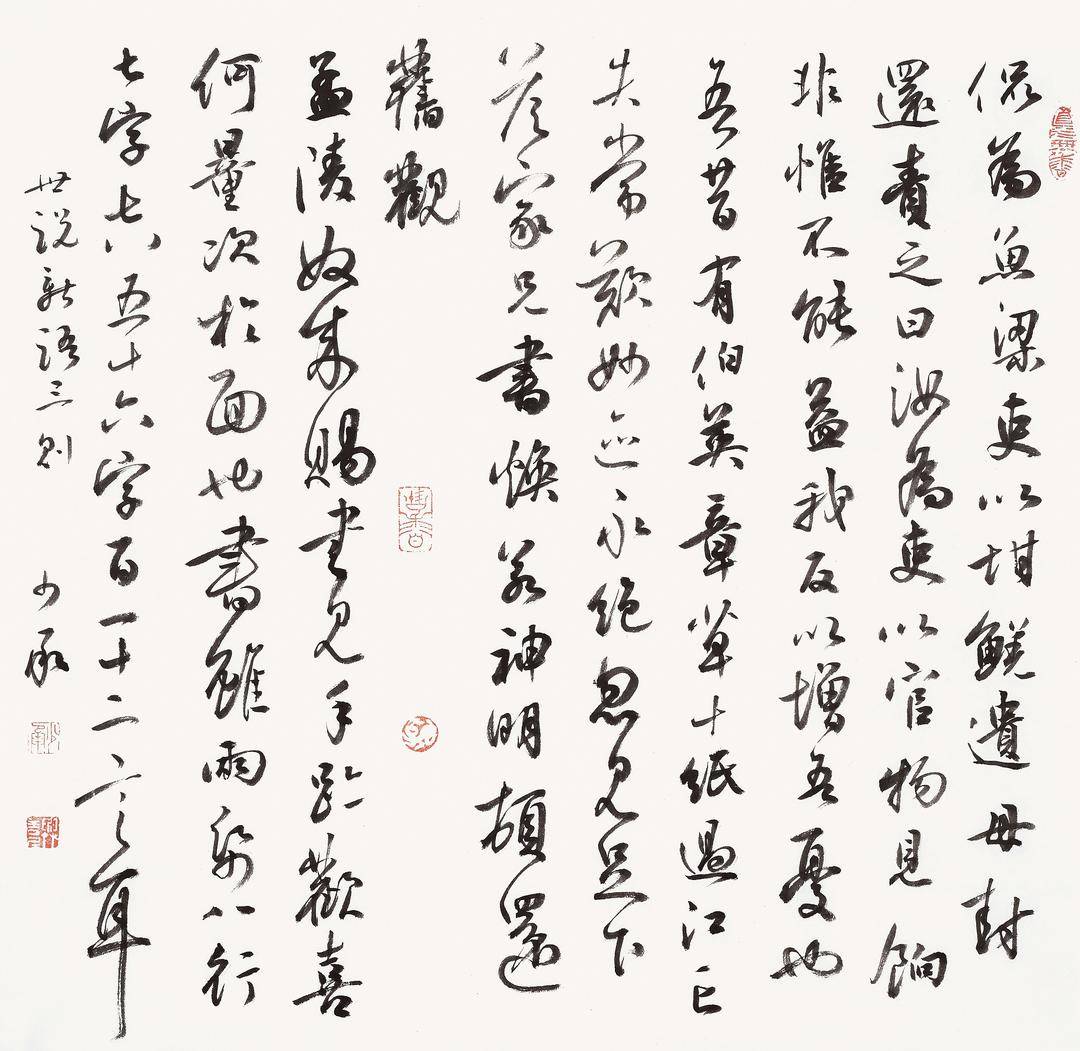 侃為魚梁吏以坩䱹遺母封
還責之曰汝為吏以官物見餉
非惟不能益我反以增吾憂也
吾昔有伯英章草十紙過江亡
失常歎妙迹永絕忽見足下
答家兄書煥若神明頓還
舊觀
孟陵奴來賜書見手跡歡喜
何量次於面也書雖兩紙八行
七字七八五十六字百一十二言耳
世說新語三則 少承